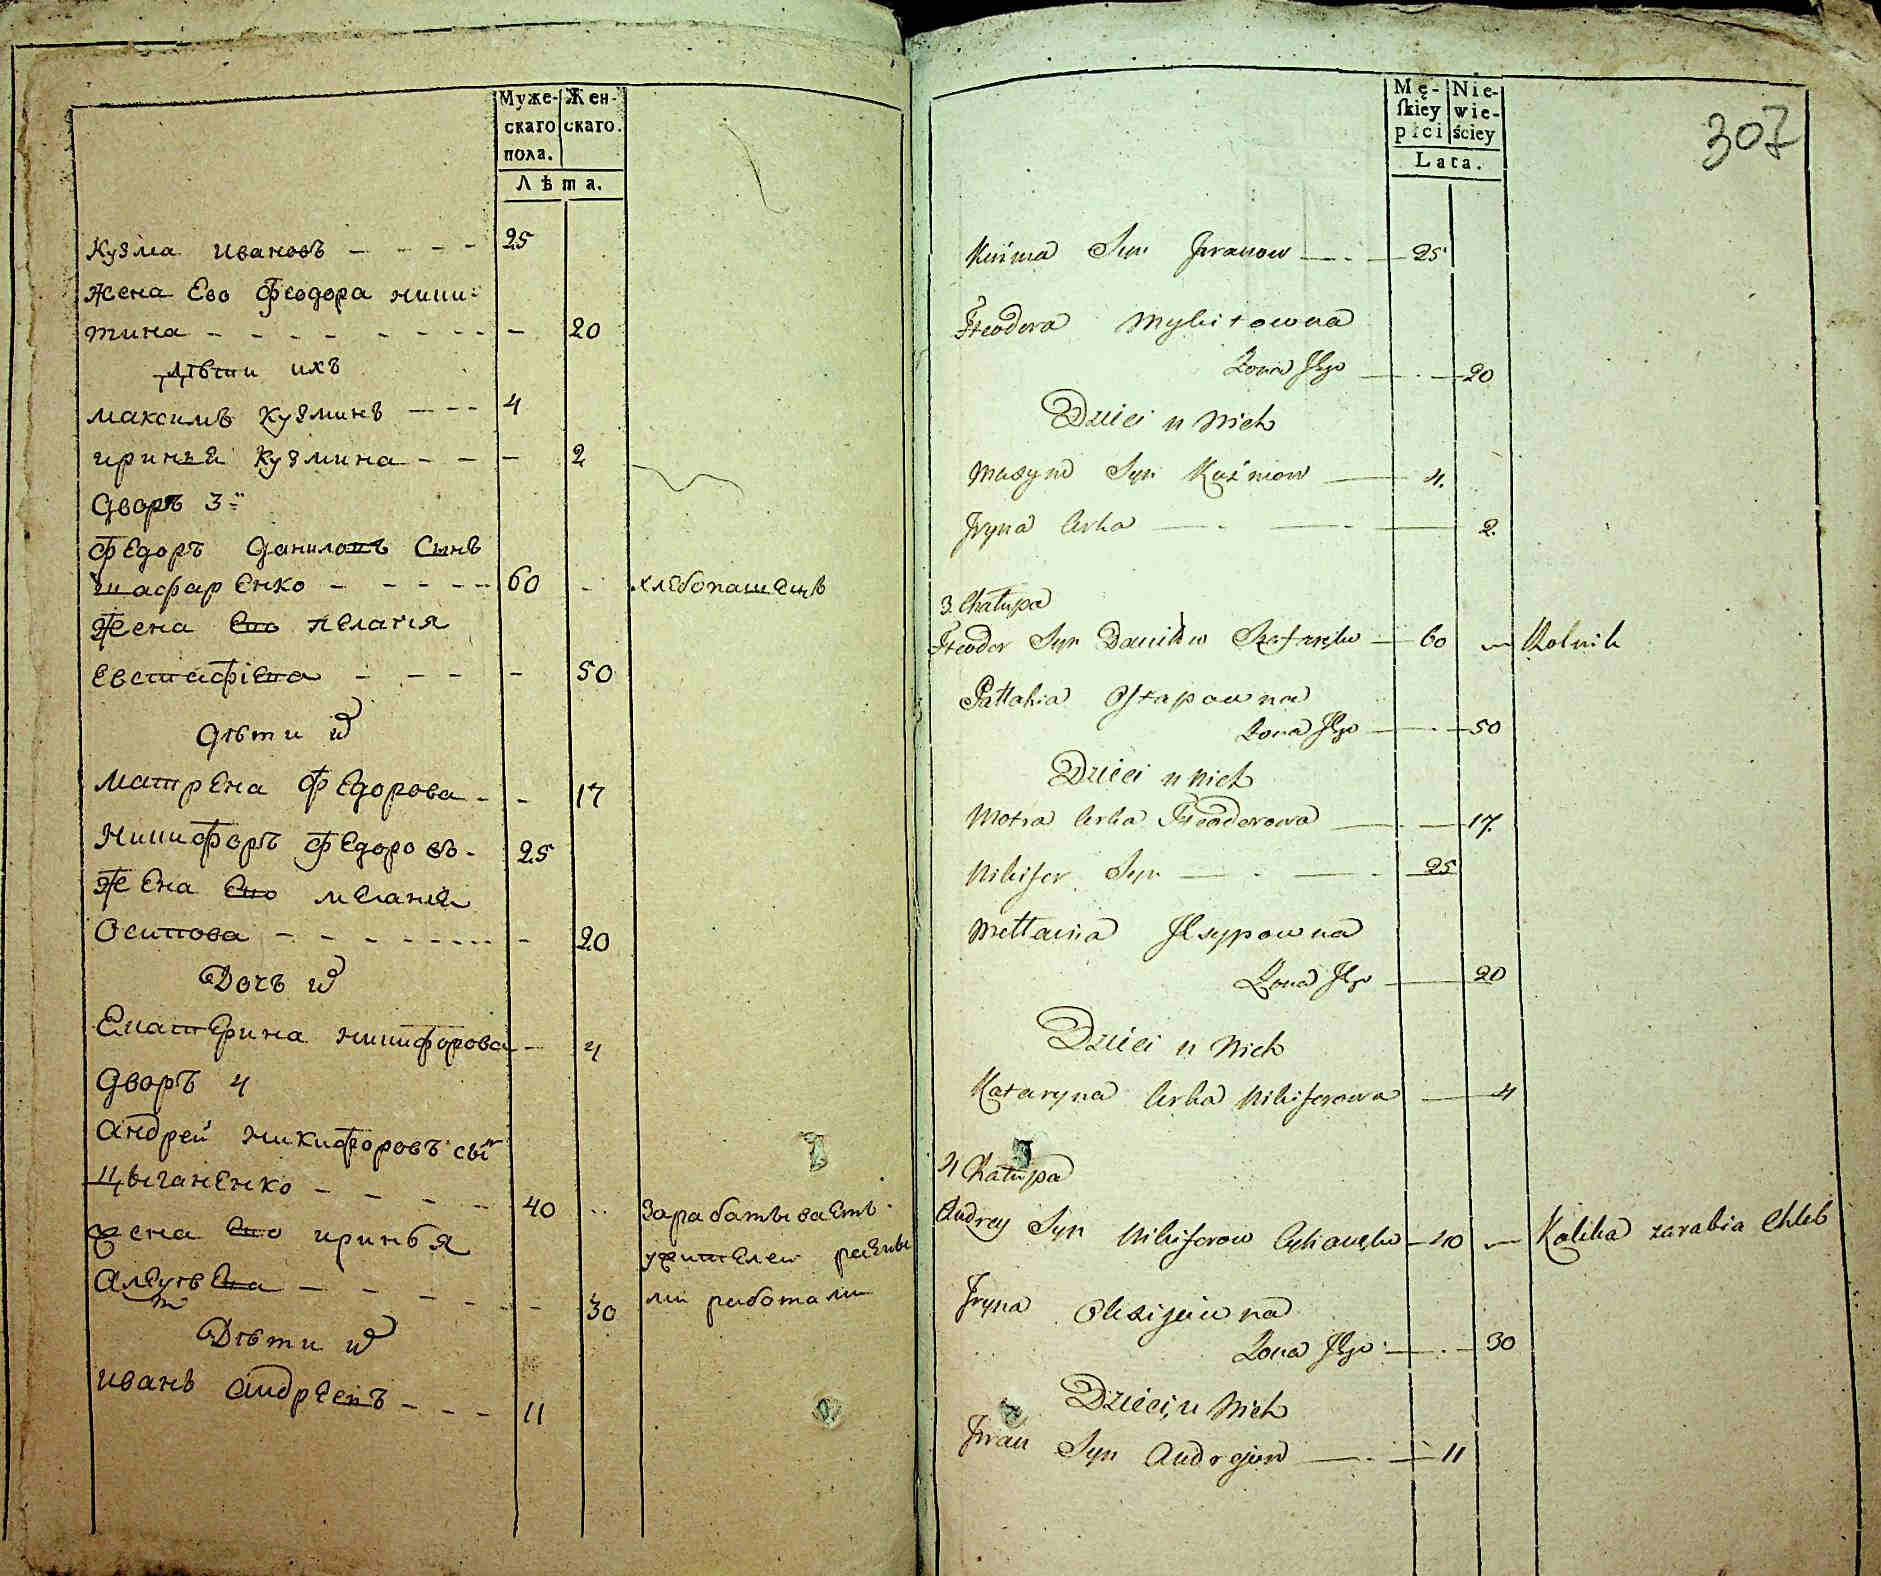 Муже-
скаго
пола.
Жен-
скаго.
Лѣта.
Кузма Ивановъ - - - - 25
Жена Ево Феодора Ники-
тина - - - - - - - - 20
Дѣти ихъ
Максимъ Кузминъ - - - 4
Ириньа Кузмина - - - 2
Дворъ 3й
Федоръ Даниловъ Сынъ
Шафаренко - - - - - 60 - хлебопашецъ
Жена Ево Пелагия
Евстафіева - - - - 50
Дѣти ихъ
Матрена Федорова - - 17
Никифоръ Федоровъ - 25
Жена Ево Меланья
Осипова - - - - - - - 20
Дочь ихъ
Екатерина Никифорова - 4
Дворъ 4
Андрей Никифоровъ сынъ
Цыганенко - - - - 40 - Зарабатываетъ
Жена Ево Иринья
Алексѣева - - - - - 30 ми работами
Дѣти ихъ
Иванъ Андреевъ - - - 11
Mę-
skiey
płci
Nie-
wie-
ściey
Lata.
307
Kuźma Syn Iwanow — 25
Fteodora Mykitowna
Żona Jego — 20
Dzieci u Nich
Maxym Syn Kuźmow — 4.
Iryna Corka — 2.
3 Chałupa
Fteodor Syn Daniłow Szafaręko — 60 — Rolnik
Pałłahia Ostapowna
Żona Jego — 50
Dzieci u Nich
Motra Corka Fteodorowa — 17.
Nikifor Syn — 25
Mełłania Jósypowna
Żona Jego — 20
Dzieci u Nich
Kataryna Corka Nikiforowa — 4
4 Chałupa
Andrey Syn Nikiforow Cyhanęko — 40 — Kalika zarabia Chleb
Iryna Olexijiwna
Żona Jego — 30
Dzieci u Nich
Iwan Syn Andrejow — 11